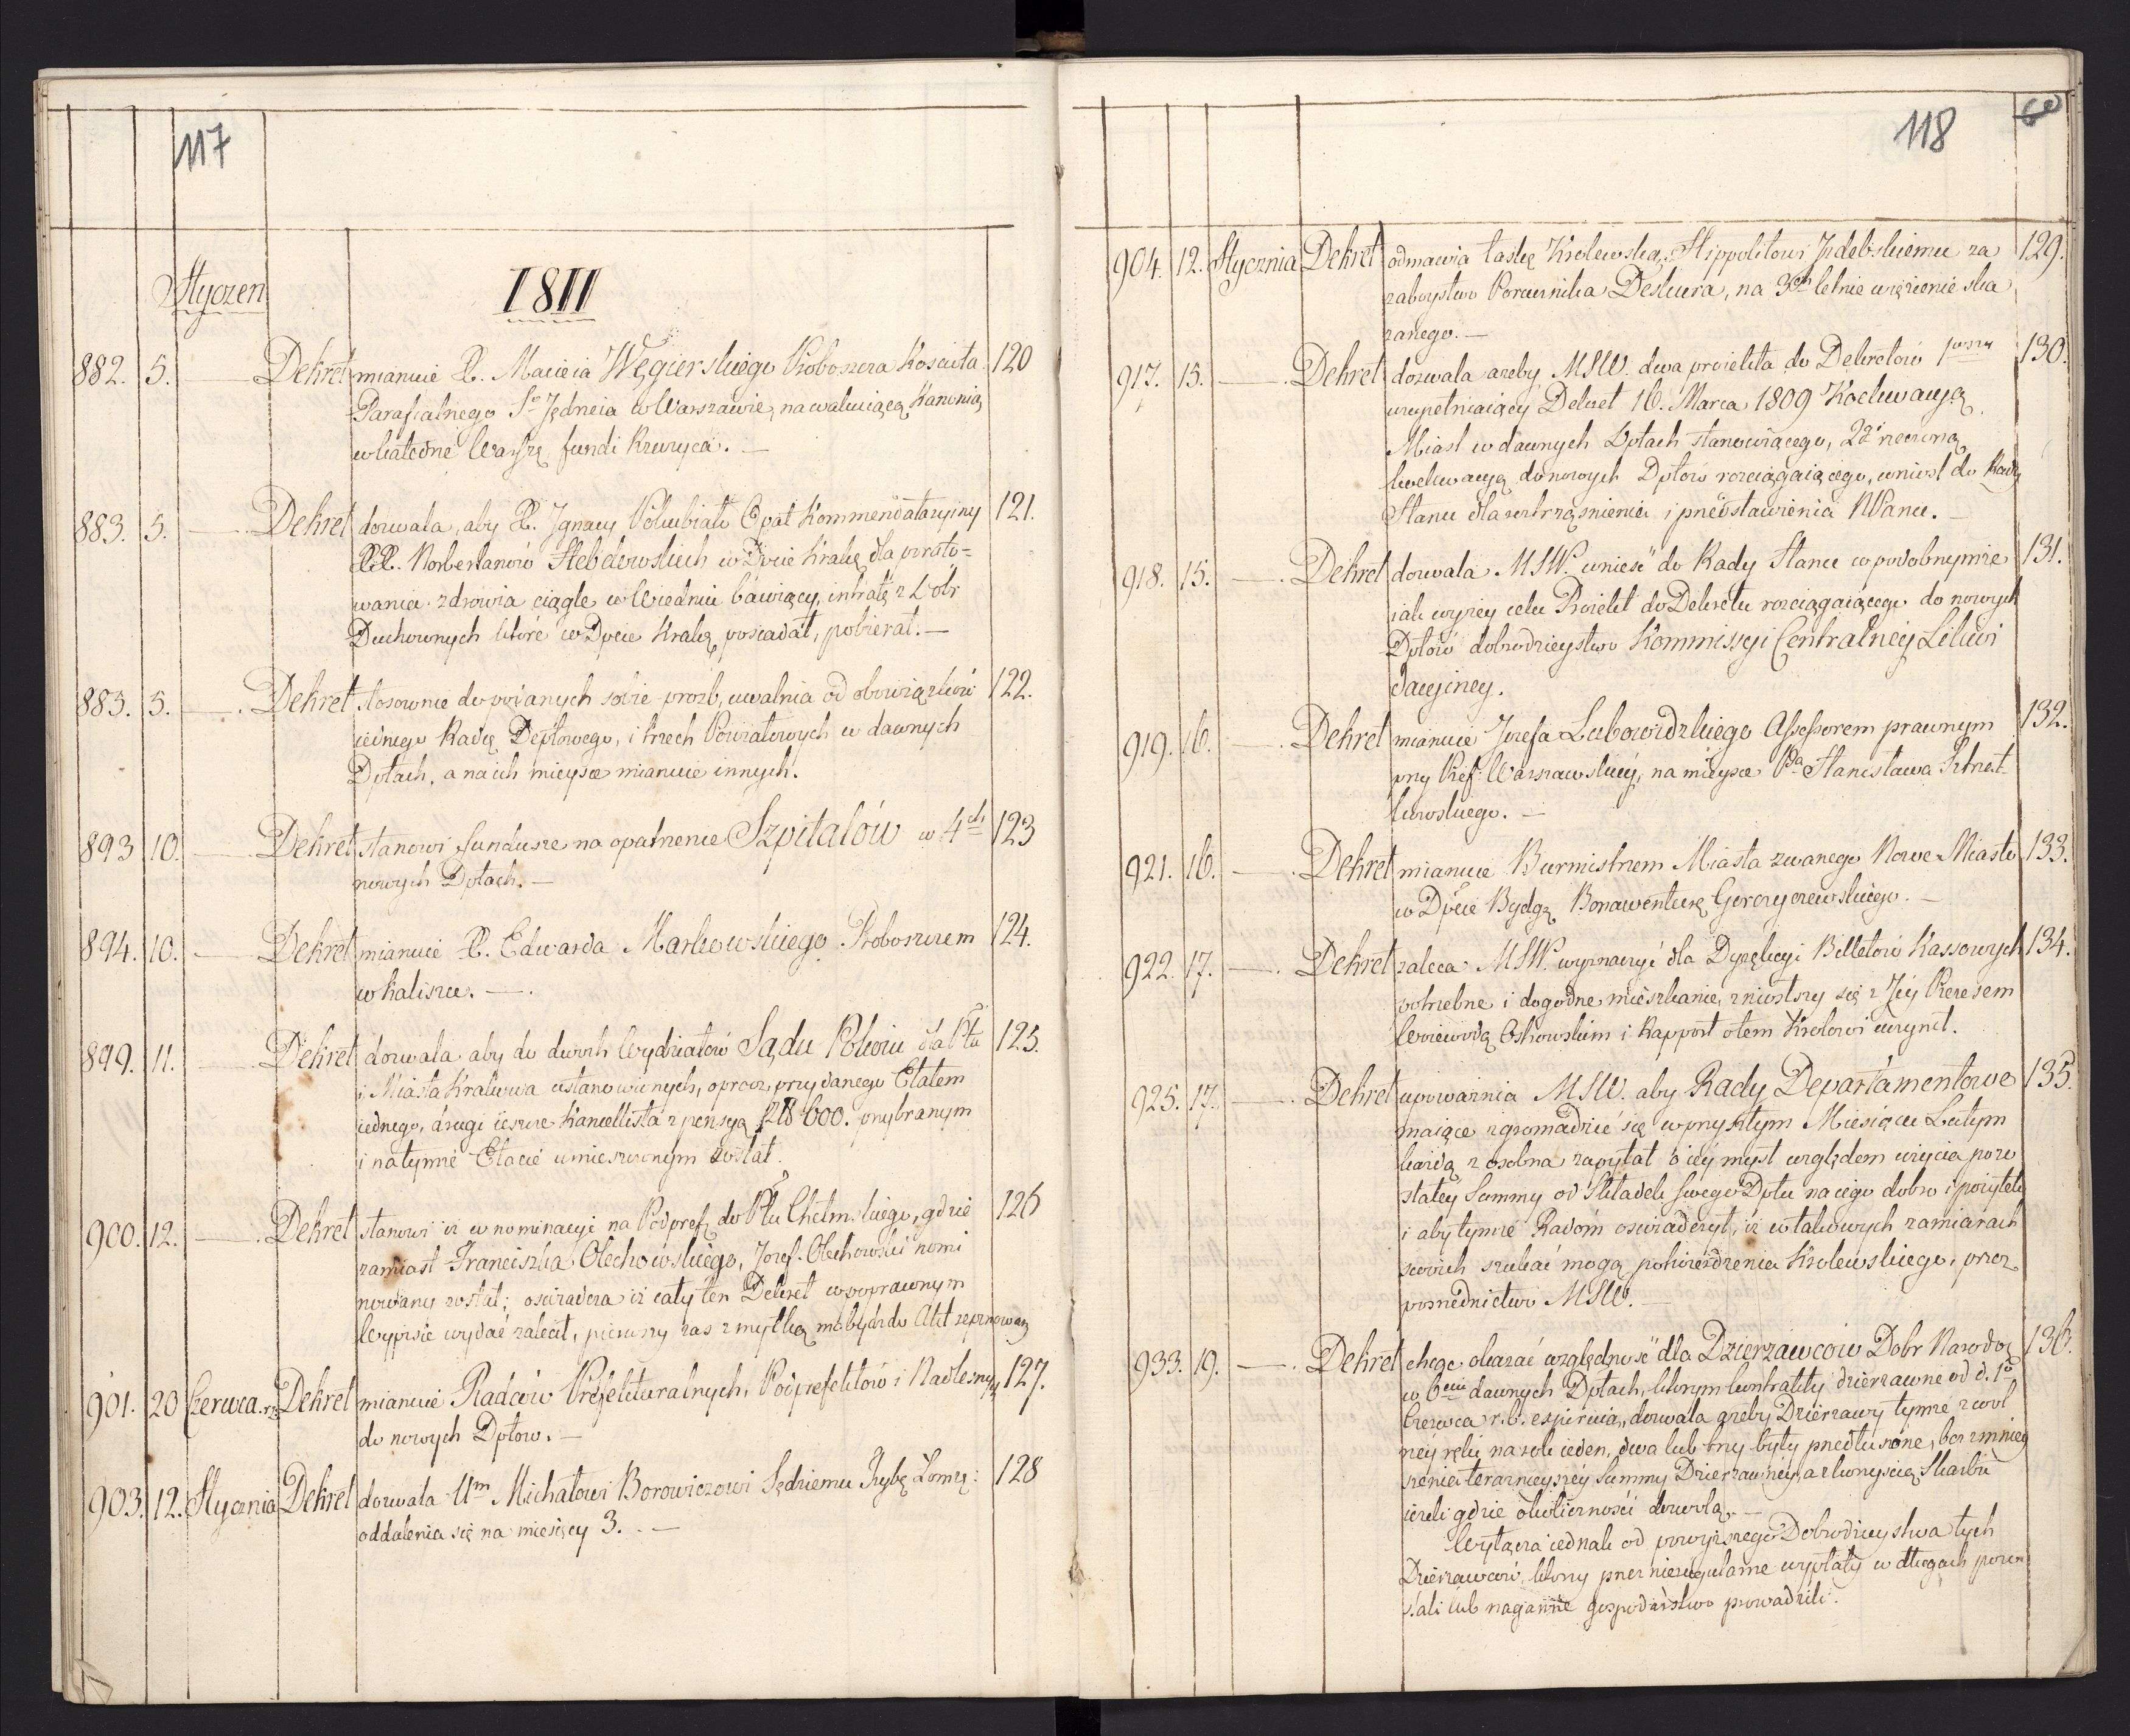 117
Styczeń
1811
882. 5. Dekret mianuie X. Macieia Węgierskiego Proboszcza Kościoła 120
Parafialnego So Jędrzeia w Warszawie, na wakuiącą Kanonią
w katedrze Warszę fundi Krzuzyca. —
883. 5. — Dekret dozwala, aby X. Ignacy Pokubiato Opat Kommendataryiny 121.
XX. Norbertanów Hebdowskich w Dpcie Krakę dla porato-
wania zdrowia ciągle w Wiedniu bawiący, intratę z Dobr
Duchownych które w Dpcie Krakę posiadał, pobierał. —
885. 5. — Dekret stosownie do podanych sobie prozb, uwalnia od obowiązków 122.
iednego Radcę Depłowego, i trzech Powiatowych w dawnych
Dptach, a na ich mieysce mianuie innych.
893 10. — Dekret stanowi fundusze na opatrzenie Szpitalów w 4ch 123
nowych Dptach. —
894. 10. — Dekret mianuie X. Edwarda Markowskiego Proboszczem 124.
w Kaliszu. —.
899. 11. — Dekret dozwala aby do dwoch Wydziałów Sądu Pokoiu dla Ptu 125.
i Miasta Krakowa ustanowionych, oprocz przydanego Etatem
iednego, drugi ieszcze Kancellista z pensyą 600. przybranym
i na tymże Etacie umieszczonym został.
900. 12. — Dekret stanowi iż w nominacyi na Podpref do Ptu Chełmskiego, gdzie 126
zamiast Franciszka Olechowskiego, Jozef Olechowski nomi
nowany został; oswiadcza iż cały ten Dekret w poprawnym
Wypisie wydać zalecił, pierwszy zas z myłką ma być do Akt
901. 20 Czerwca. Dekret mianuie Radców Prefekturalnych, Podprefektów i Nadlesnych 127.
do nowych Dptow. —
903. 12. Stycznia Dekret dozwala Um Michałowi Borowiczowi Sędziemu Trybę Łomżę: 128
oddalenia się na miesięcy 3. —
118
60
904. 12. Stycznia Dekret odmawia łaskę Krolewską Hippolitowi Jzdebskiemu za 129.
zaboystwo Porucznika Deskura, na 3ch letnie więzienie ska
zanego. —
917. 15. — Dekret dozwala azeby MSW. dwa proiekta do Dekretów 130.
uzupełniaiący Dekret 16. Marca 1809
Miast w dawnych Dptach stanowiącego, 2gi rzeczoną
do nowych Dptow rozciągaiącego, wniosł do Rady
Stanu dla roztrząsnienia i przedstawienia NPanu. —
918. 15. — Dekret dozwala MSW. wnieść do Rady Stanu w podobnymże 131.
iak wyżey celu Proiekt do Dekretu rozciągaiącego do nowych
Dptow dobrodzieystwo Kommissyi Centralney Likwi
dacyiney.
919. 16. — Dekret mianuie Jozefa Lubowidzkiego Assessorem prawnym 132.
przy Pref: Warszawskiey, na mieysce Pa Stanisława
921. 16. — Dekret mianuie Burmistrzem Miasta zwanego Nowe Miasto 133.
w Dpcie Bydgą Bonawenturę Gorczyczewskiego. —
922. 17. — Dekret zaleca MSW. wyznaczyć dla Dyrekcyi Billetow Kassowych 134.
potrzebne i dogodne mieszkanie, zniosłszy się z Jey Prezesem
Woiewodą Ostrowskim i Rapport o tem Krolowi uczynić.
925. 17. — Dekret upoważnia MSW. aby Rady Departamentowe 135.
maiące zgromadzić się w przyszłym Miesiącu Lutym
każdą z osobna zapytał o iey mysl względem użycia pozo
stałey Summy od Składek swego Dptu na iego dobro i pożytek
i aby tymże Radom oswiadczył, iż w takowych zamiarach
swoich szukać mogą potwierdzenia Krolewskiego, przez
posrednictwo MSW. —
933. 19. — Dekret chcąc okazać względność dla Dzierzawców Dobr Narodoę 136.
w 6ciu dawnych Dptach, ktorym kontrakty dzierzawne od d. 1o
Czerwca r. b. expiruią, dozwala azeby Dzierzawy tymże z wol
ney ręki na rok ieden, dwa lub trzy były przedłużone, bez zmniey
szenia terazniejszey Summy Dzierzawney, a z korzyscią Skarbu
iezeli gdzie okoliczności dozwolą. —
Wyłącza iednak od powyższego Dobrodzieystwa tych
Dzierzawców, ktorzy przez nieregularne wypłaty w długach pozo
stali lub naganne gospodarstwo prowadzili.